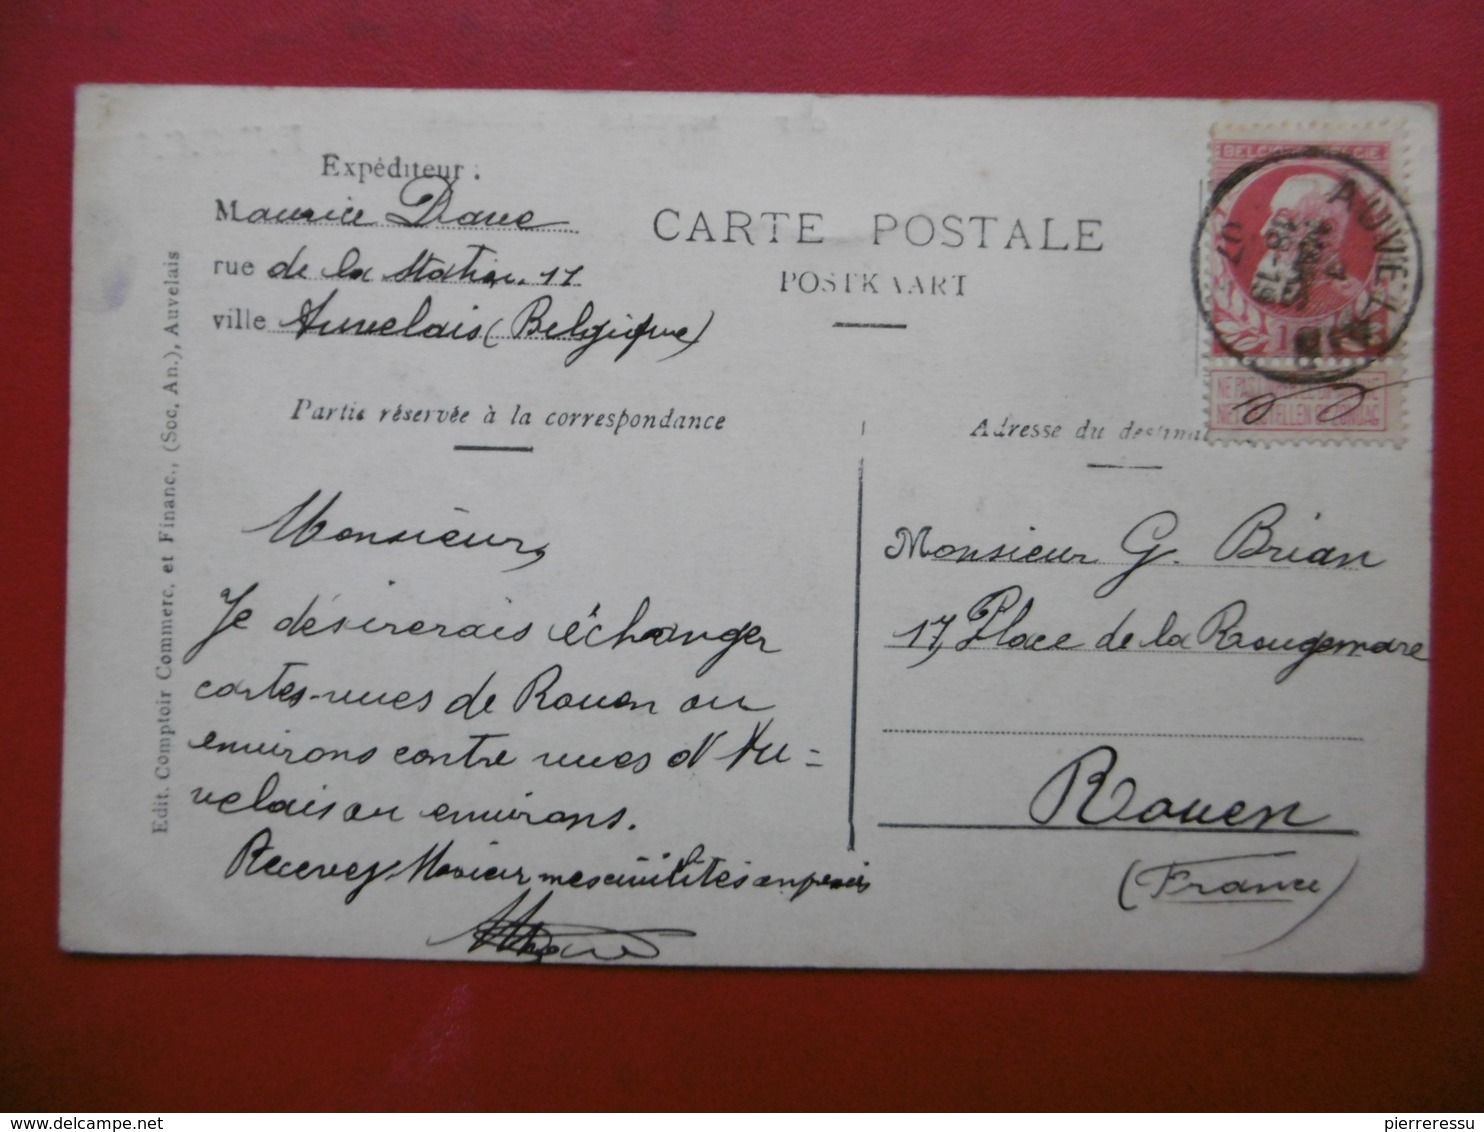 Expéditeur :
Maurice
rue de la Station. 11
ville Auvelais (Belgique)
CARTE POSTALE
POSTKAART
BELGIQUE BELGIE
AUVELAIS
18-19
07
NE PAS LIVRER LE DIMANCHE
NIET BESTELLEN OP ZONDAG
Partie réservée à la correspondance
Adresse du destina
Edit. Comptoir Commerc, et Financ., (Soc, An.), Auvelais
Monsieur,
Je désirerais échanger
cartes-vues de Rouen ou
environs contre vues d'Au=
velais ou environs.
Recevez Mosieur mes civilités
Monsieur G. Brian
17, Place de la Rougemare
Rouen
(France)
delcampe.net
pierreressu